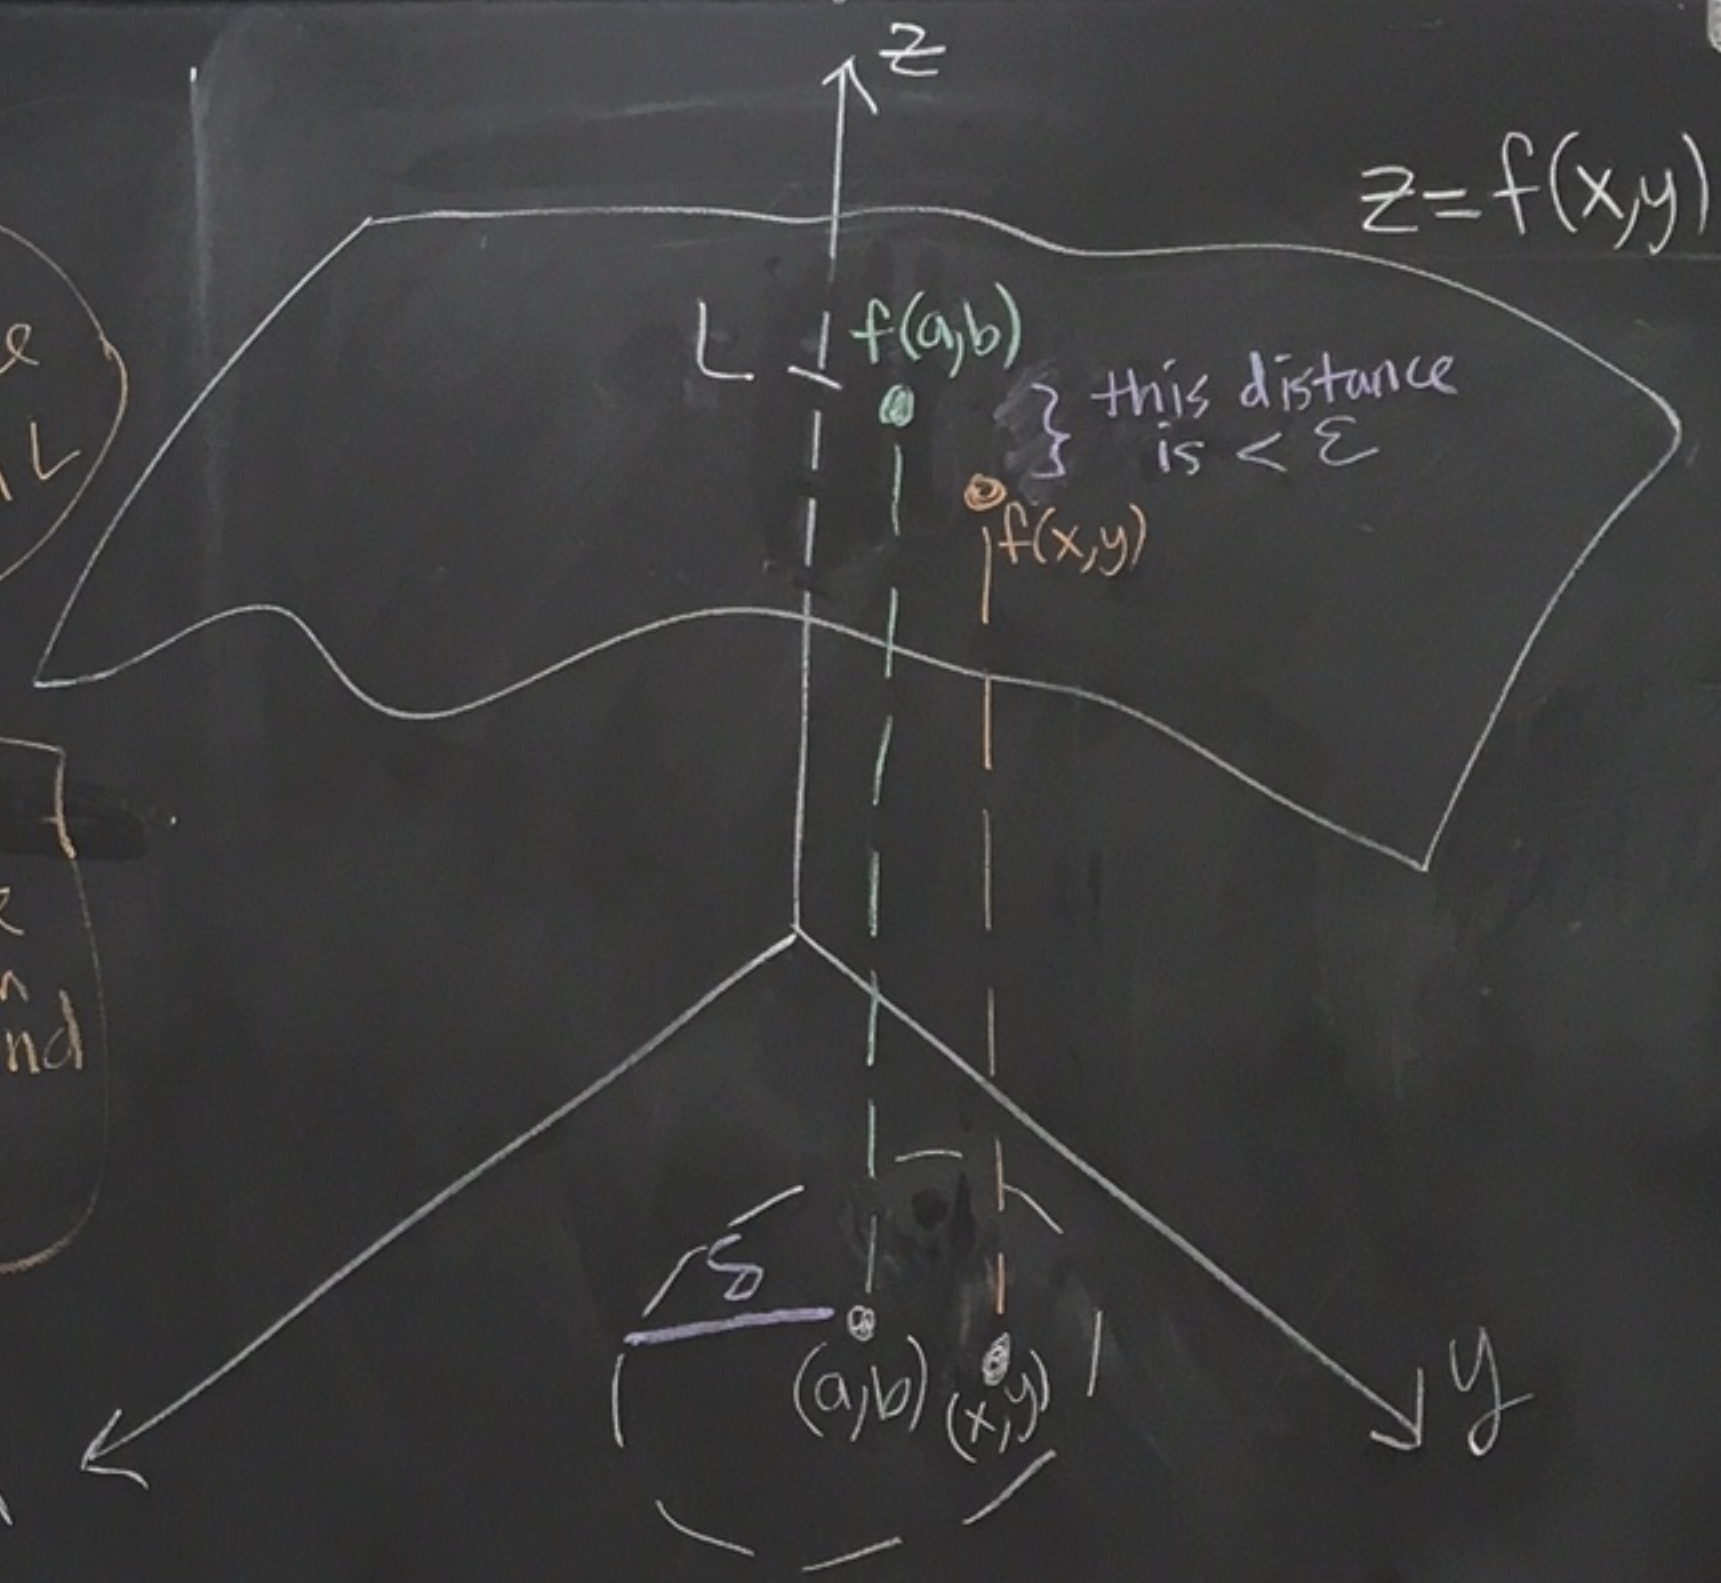 z
z=f(x,y)
L
f(a,b)
} this distance
is < ε
f(x,y)
L
nd
δ
(a,b)
(x,y)
y